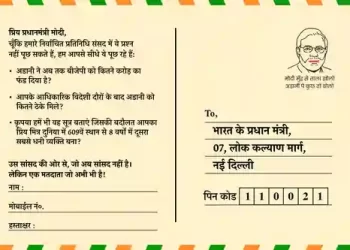 प्रिय प्रधानमंत्री मोदी,
चूँकि हमारे निर्वाचित प्रतिनिधि संसद में ये प्रश्न
नहीं पूछ सकते हैं, हम आपसे सीधे ये पूछ रहे हैं:
• अडानी ने अब तक बीजेपी को कितने करोड़ का
फंड दिया है?
• आपके आधिकारिक विदेशी दौरों के बाद अडानी को
कितने ठेके मिले?
• कृपया हमें भी वह सूत्र बताएं जिसकी बदौलत आपका
प्रिय मित्र दुनिया में 609वें स्थान से 8 वर्षों में दूसरा
सबसे धनी व्यक्ति बना?
उस सांसद की ओर से, जो अब सांसद नहीं है।
लेकिन एक मतदाता जो अभी भी है!
नाम :
मोबाईल नं०.
हस्ताक्षर :
मोदी मुँह से ताला खोलो
अडानी पे कुछ तो बोलो
To,
भारत के प्रधान मंत्री,
07, लोक कल्याण मार्ग,
नई दिल्ली
पिन कोड 1 1 0 0 2 1